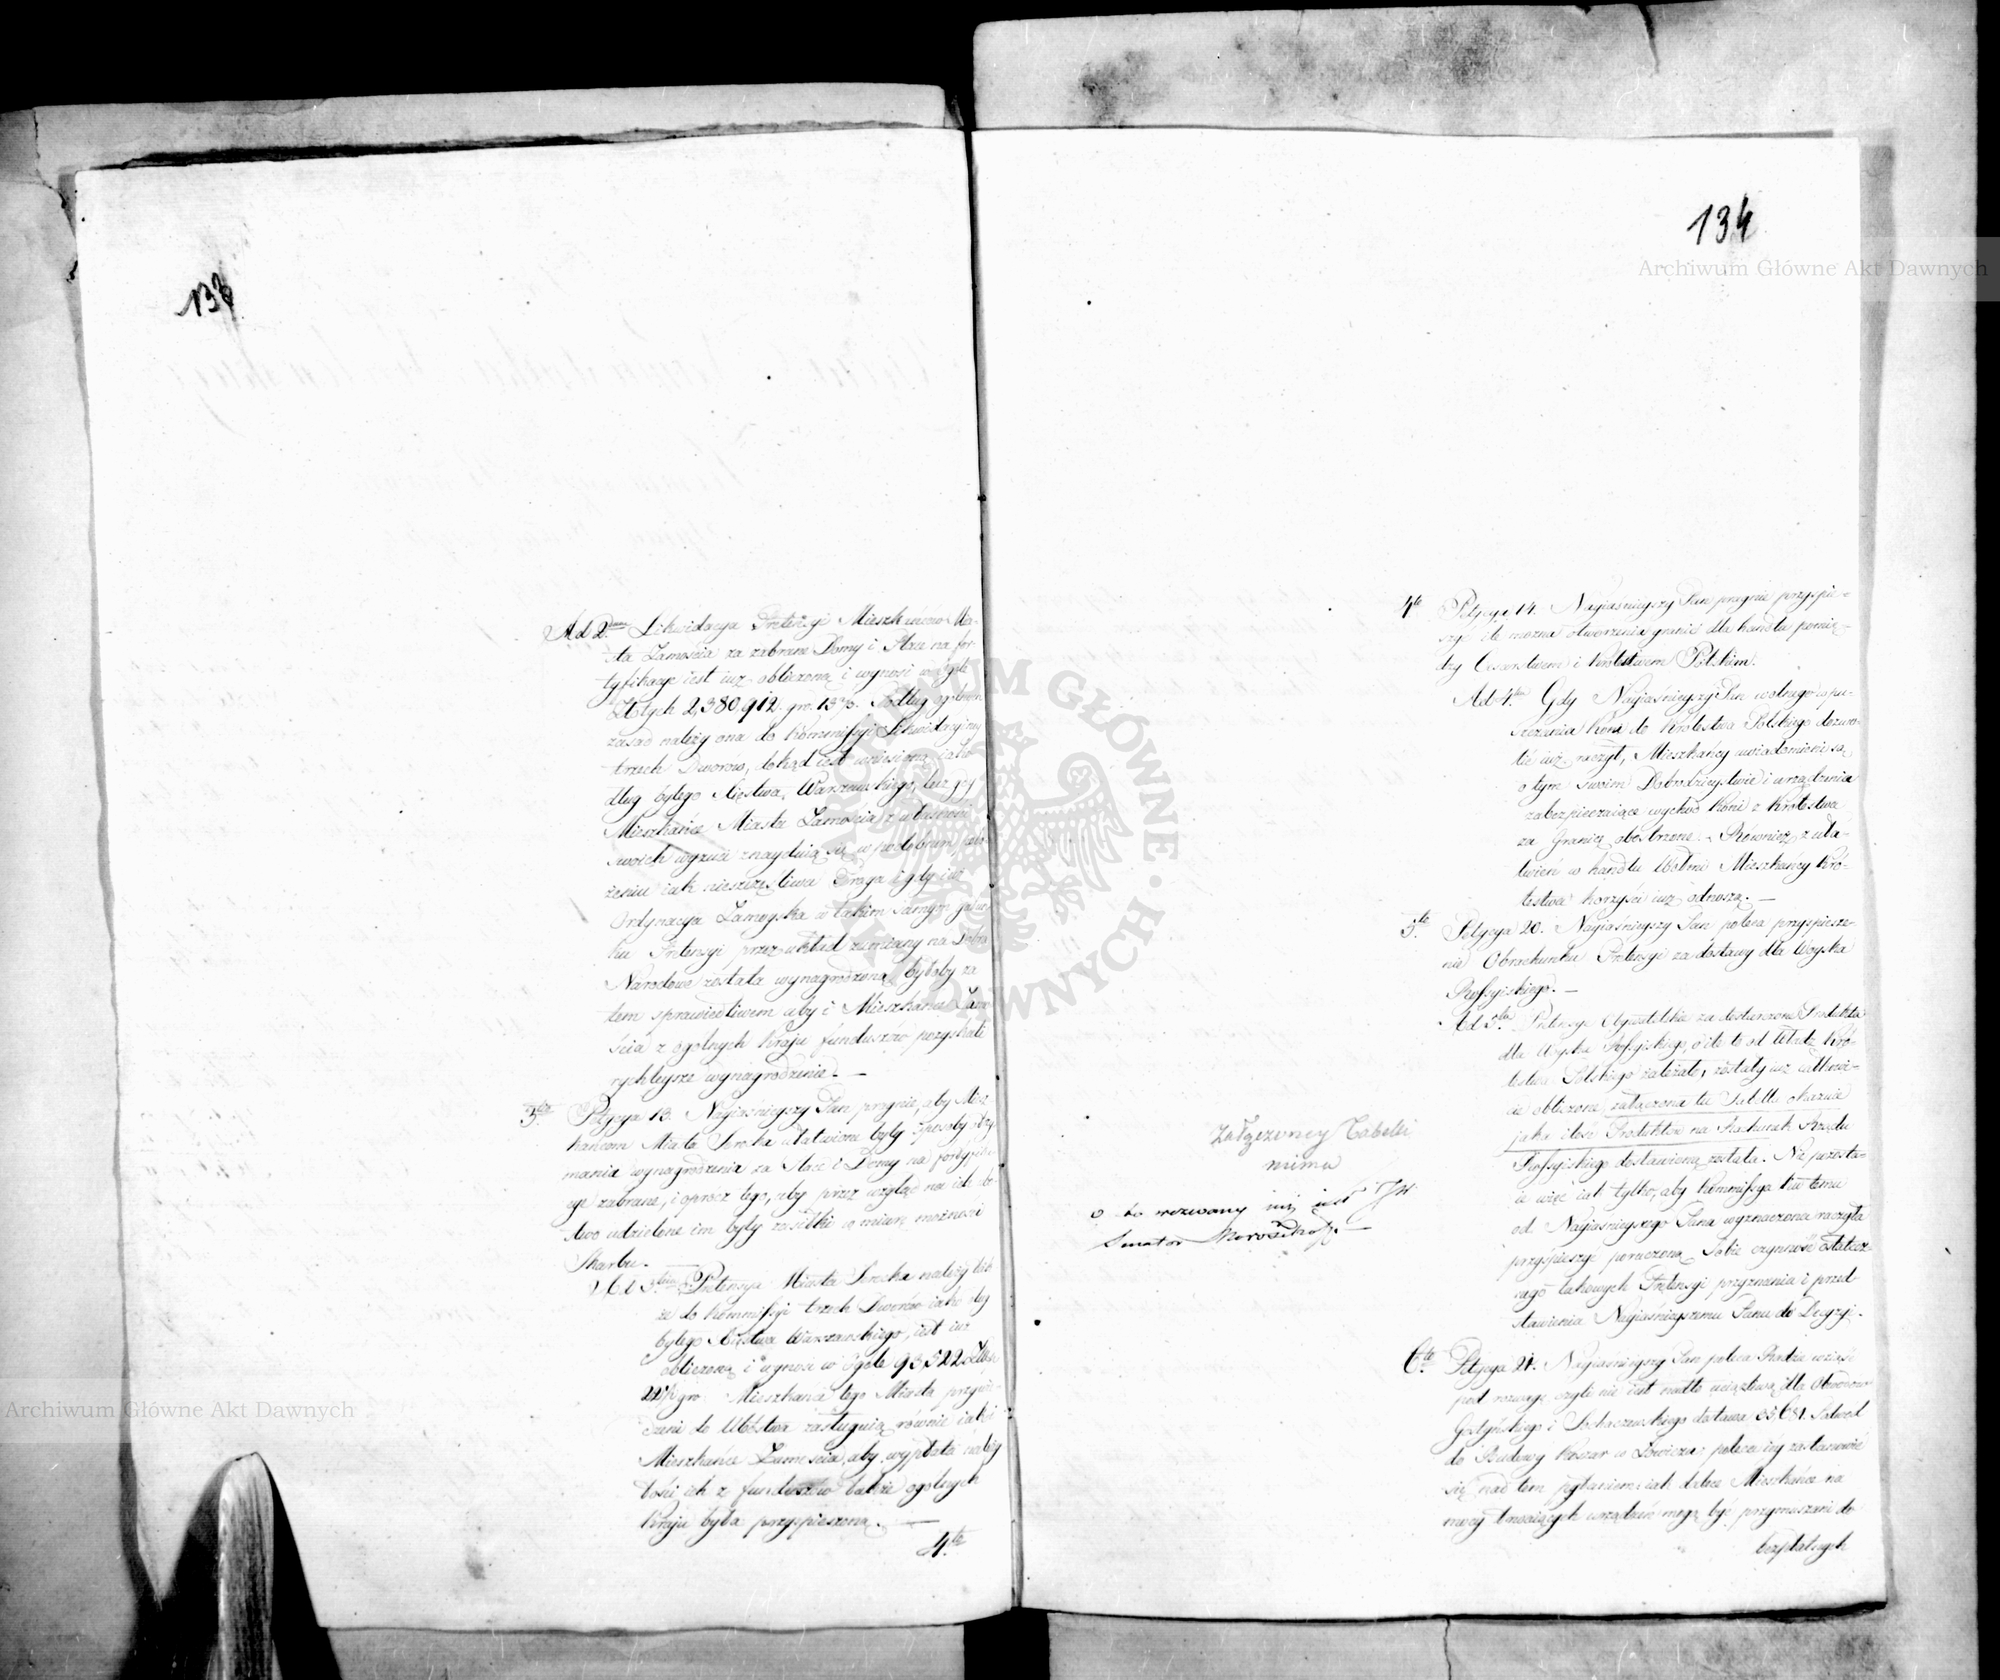 133
Ad 2um Likwidacya Pretensyi Mieszkańców Mia-
sta Zamościa za zabrane Domy i Place na for-
tyfikacye iest iuż obliczoną i wynosi w ogóle
Złotych 2,380,912. gro. 13⅓. Podług ogolnych
zasad należy ona do Kommissyi Likwidacyiney
trzech Dworów, dokąd iest wniesioną jako
dług byłego Xięstwa Warszawskiego, lecz gdy
Mieszkańce Miasta Zamościa z własności
swoich wyzuci znayduią się w podobnym poło-
żeniu iak nieszczęśliwa Praga i gdy iuż
Ordynacya Zamoyska w takim samym gatun-
ku Pretensyi przez układ zamiany na Dobra
Narodowe została wynagrodzoną, byłoby za
tem sprawiedliwem aby i Mieszkańce Zamo-
ścia z ogolnych Kraju funduszów pozyskali
rychleysze wynagrodzenie. —
3cie Petycya 13. Nayiaśnieyszy Pan pragnie, aby Miesz-
kańcom Miasta Serocka ułatwione były sposoby otrzy-
mania wynagrodzenia za Place i Domy na fortyfika-
cye zabrane, i oprócz tego, aby przez wzgląd na ich
udzielone im były zasiłki w miarę możności
Skarbu.
Ad 3cium Pretensya Miasta Serocka należy tak
że do Kommissyi trzech Dworów iako dług
byłego Xięstwa Warszawskiego, iest iuż
obliczoną i wynosi w ogóle 93,522 Złotych
22 gro. Mieszkańcy tego Miasta przywie-
dzeni do Ubóstwa zasługuią równie iak i
Mieszkańce Zamościa, aby wypłata należy
tości ich z funduszów także ogolnych
Kraju była przyspieszoną. —
4te
134
4te Petycya 14. Nayiaśnieyszy Pan pragnie przyspie-
szyć ile można otworzenia granic dla handlu pomię-
dzy Cesarstwem i Królestwem Polskim.
Ad 4. Gdy Nayiaśnieyszy Pan wolnego wpu-
szczania Koni do Królestwa Polskiego dozwo-
lić iuż raczył, Mieszkańcy uwiadomieni są
o tym swoim Dobrodzieystwie i urządzenia
zabezpieczaiące wychód Koni z Królestwa
za Granicę obostrzone. — Również z uła-
twień w handlu Wołmi Mieszkańcy Kró-
lestwa korzyści iuż odnoszą. —
5te Petycya 20. Nayiaśnieyszy Pan poleca przyspiesze-
nie Obrachunku Pretensyi za dostawy dla Woyska
Rossyiskiego. —
Ad 5te Pretensye Obywatelskie za dostarczone Produkta
dla Woyska Rossyiskiego, o ile to od Władz Kró-
lestwa Polskiego zależało, zostały iuż całkowi-
cie obliczone, załączona tu Tabella okazuie
jaka ilość Produktów na Rachunek Rządu
Rossyiskiego dostawioną została. Nie pozosta-
ie więc iak tylko, aby Kommissya ku temu
od Nayiaśnieyszego Pana wyznaczona raczyła
przyspieszyć poruczoną Sobie czynność ostatecz-
nego takowych Pretensyi przyznania i przed-
stawienia Nayiaśnieyszemu Panu do Decyzyi.
Załączoney Tabelli
niema
o to wezwany iuż iest JW.
Senator
6te Petycya 21. Nayiaśnieyszy Pan poleca Radzie wziąść
pod rozwagę czyli nie iest nadto uciążliwą dla Obwodów
Gostyńskiego i Sochaczewskiego dostawa 35,681.
do Budowy Koszar w Łowiczu; poleca iey zastanowić
się nad tem pytaniem: iak daleco Mieszkańce na
mocy trwaiących urządzeń mogą być przymuszani do
bezpłatnych
Archiwum Główne Akt Dawnych
Archiwum Główne Akt Dawnych
ARCHIWUM GŁÓWNE AKT DAWNYCH